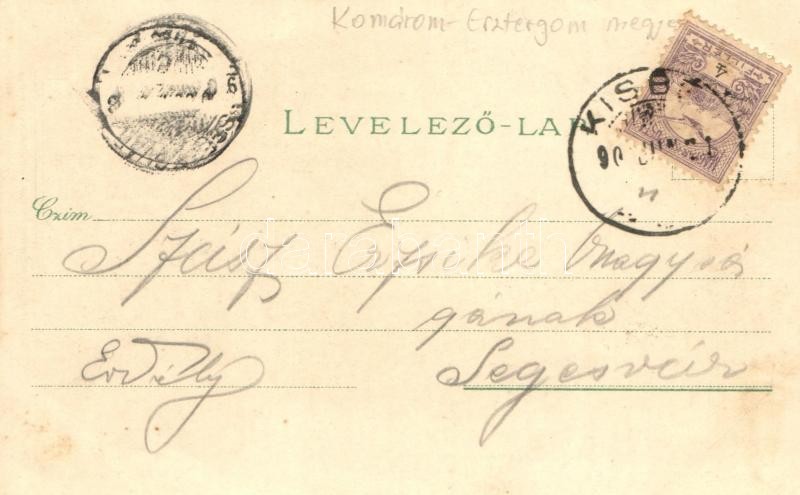 Komárom-Esztergom megye
LEVELEZŐ-LAP
4
FILLÉR
KISB
90
Czim
Szász Erzsike Nagysá
gának
Erdély
Segesvár